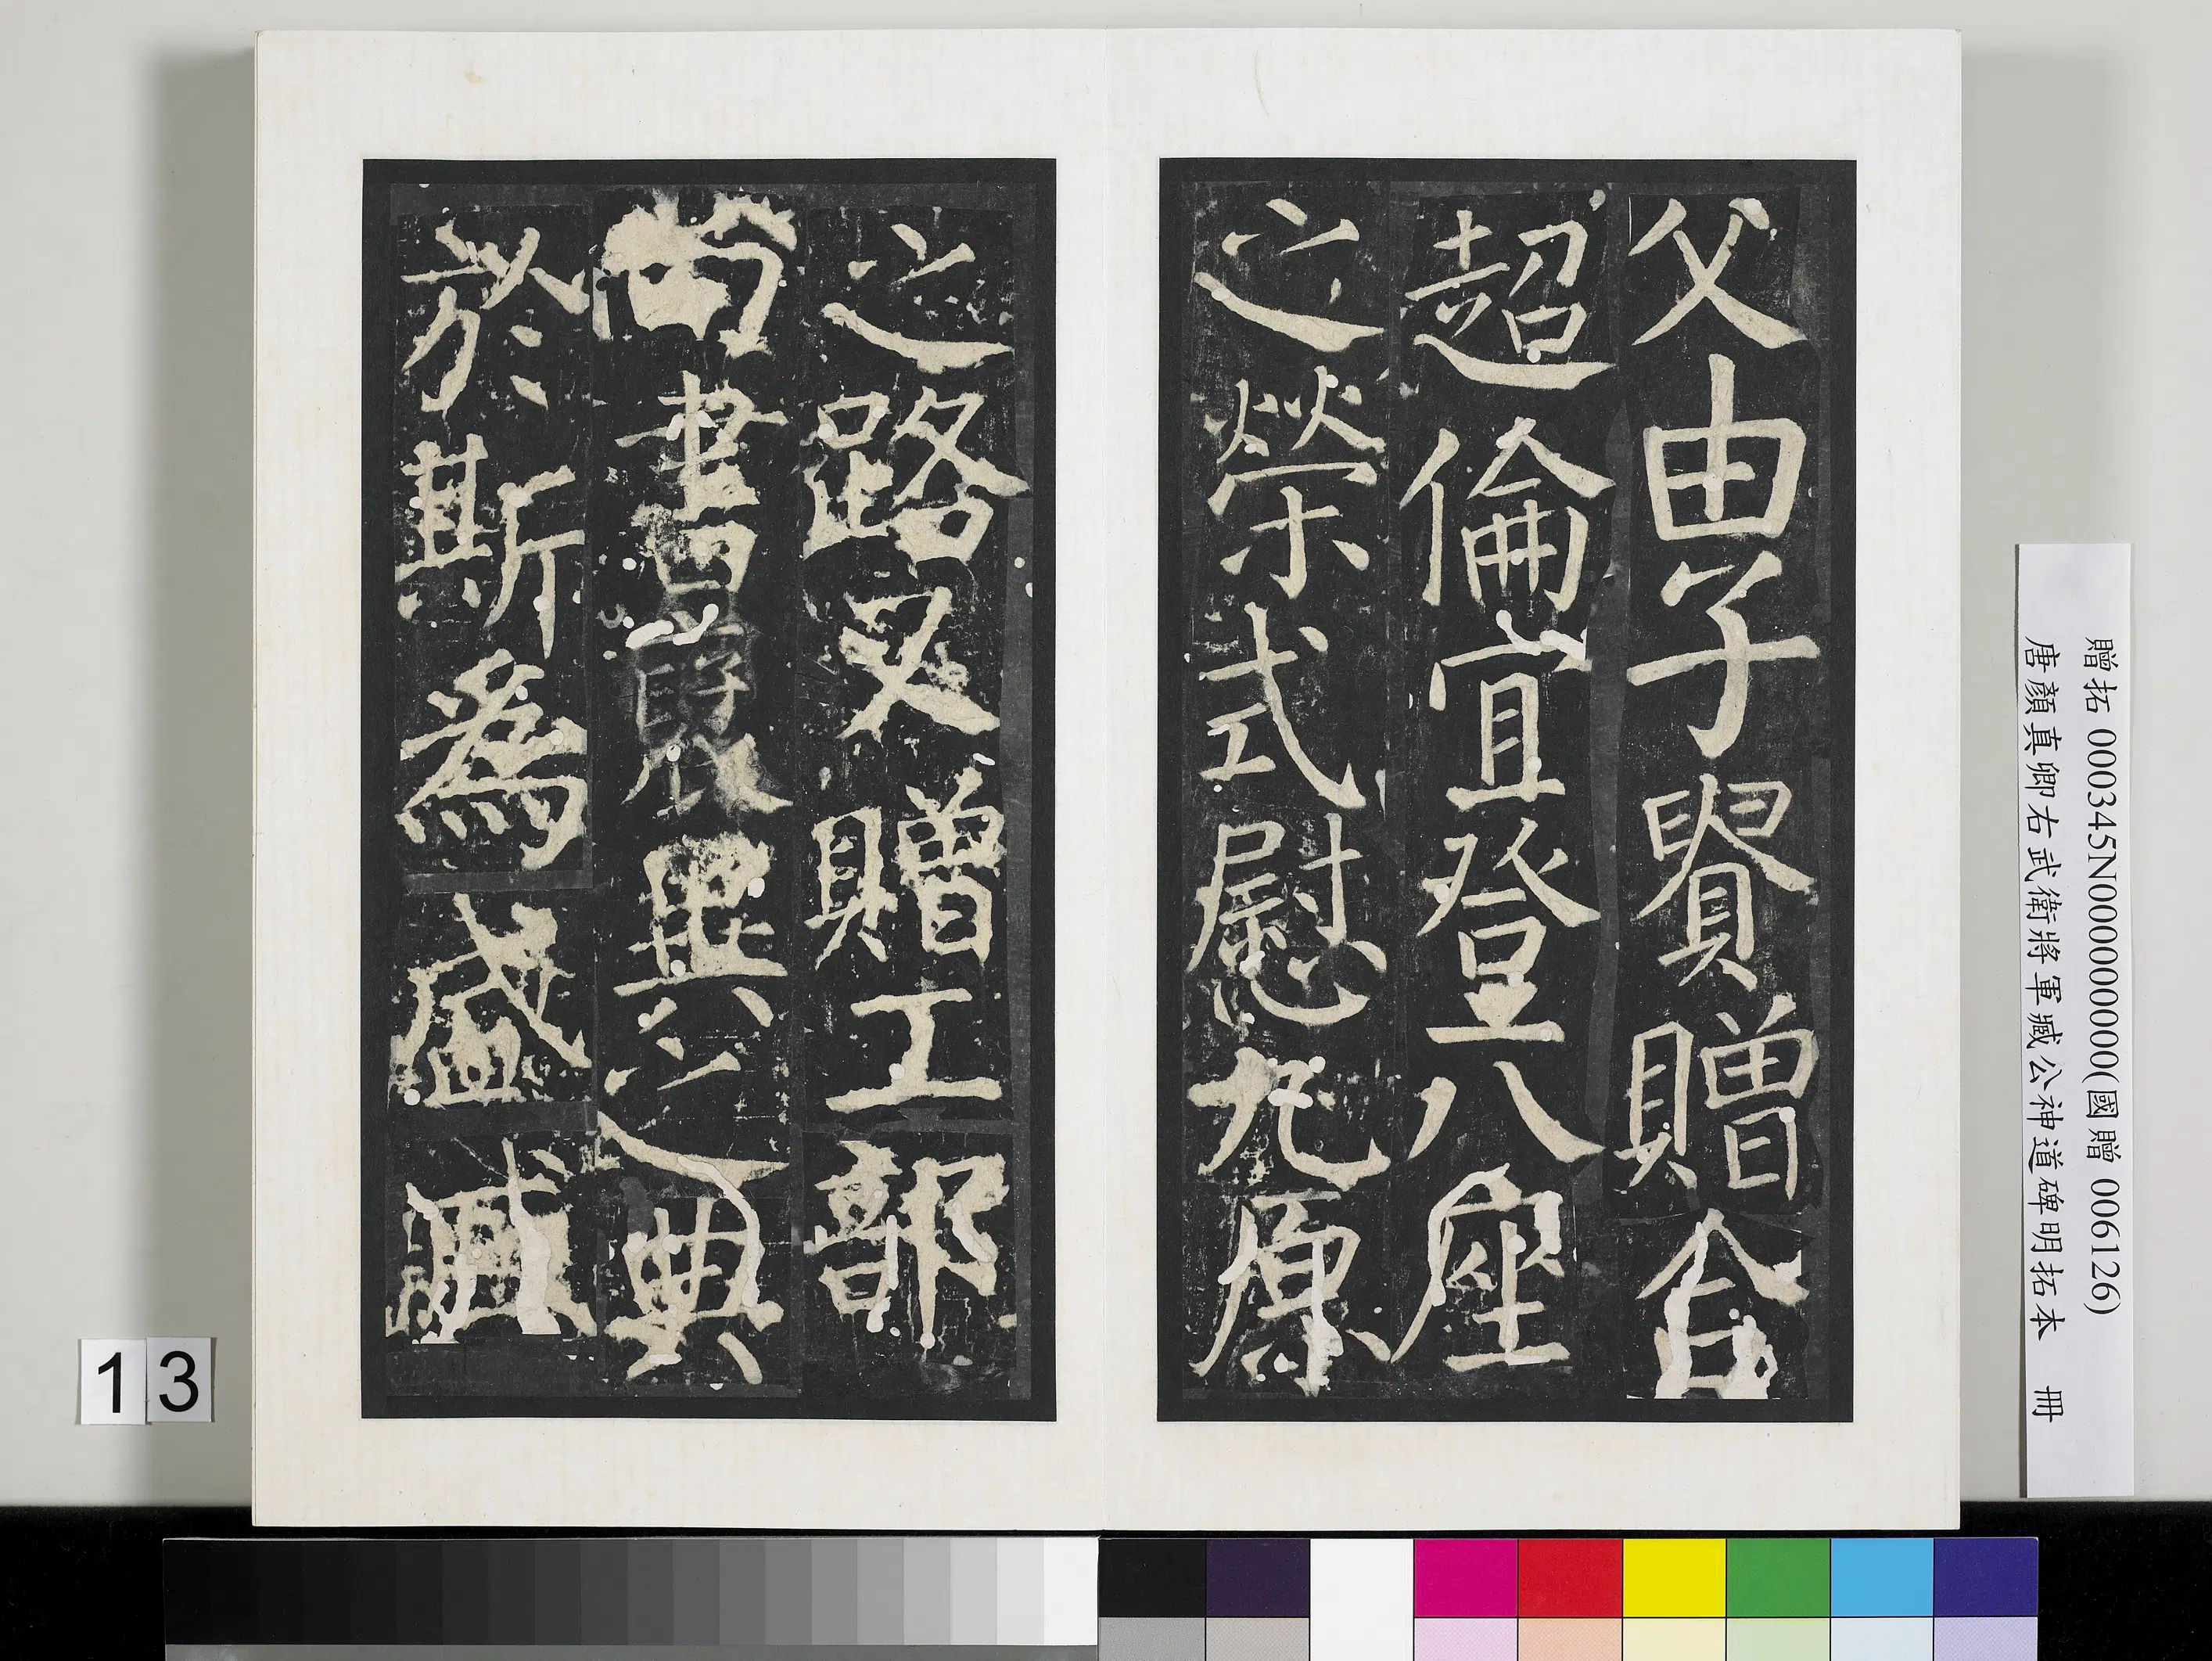 父由子賢贈合
超倫宜登八座
之榮式慰九原
之路又贈工部
尚書襃異之典
於斯為盛臧
贈拓 000345N000000000(國贈 006126)
唐顏真卿右武衛將軍臧公神道碑明拓本 冊
13